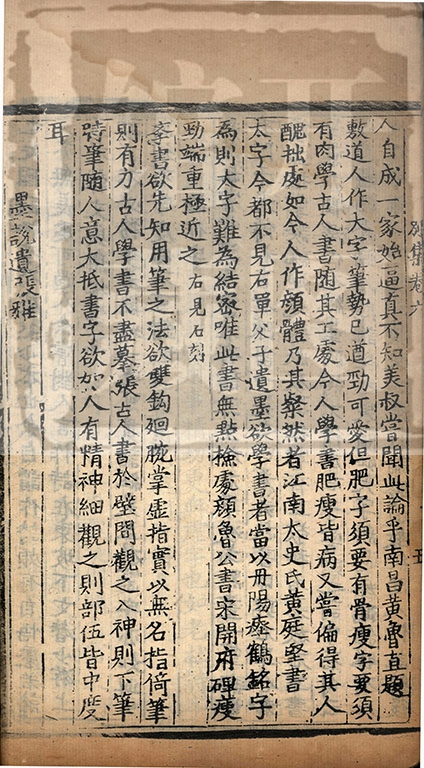 別集卷六
五
人自成一家始逼真不知美叔嘗聞此論乎南昌黃魯直題
敷道人作大字筆勢已遒勁可愛但肥字須要有骨瘦字要須
有肉學古人書隨其工處今人學書肥瘦皆病又嘗偏得其人
醜拙處如今人作顏體乃其粲然者江南太史氏黃庭堅書
太字今都不見右單父子遺墨欲學書者當以丹陽瘞鶴銘字
為則大字難為結密唯此書無點撿處顏魯公書宋開府碑瘦
勁端重極近之右見石刻
學書欲先知用筆之法欲雙鈎廻腕掌虛指實以無名指倚筆
則有力古人學書不盡摹張古人書於壁間觀之入神則下筆
時筆隨人意大抵書字欲如人有精神細觀之則部伍皆中度
耳
墨說遺張雅